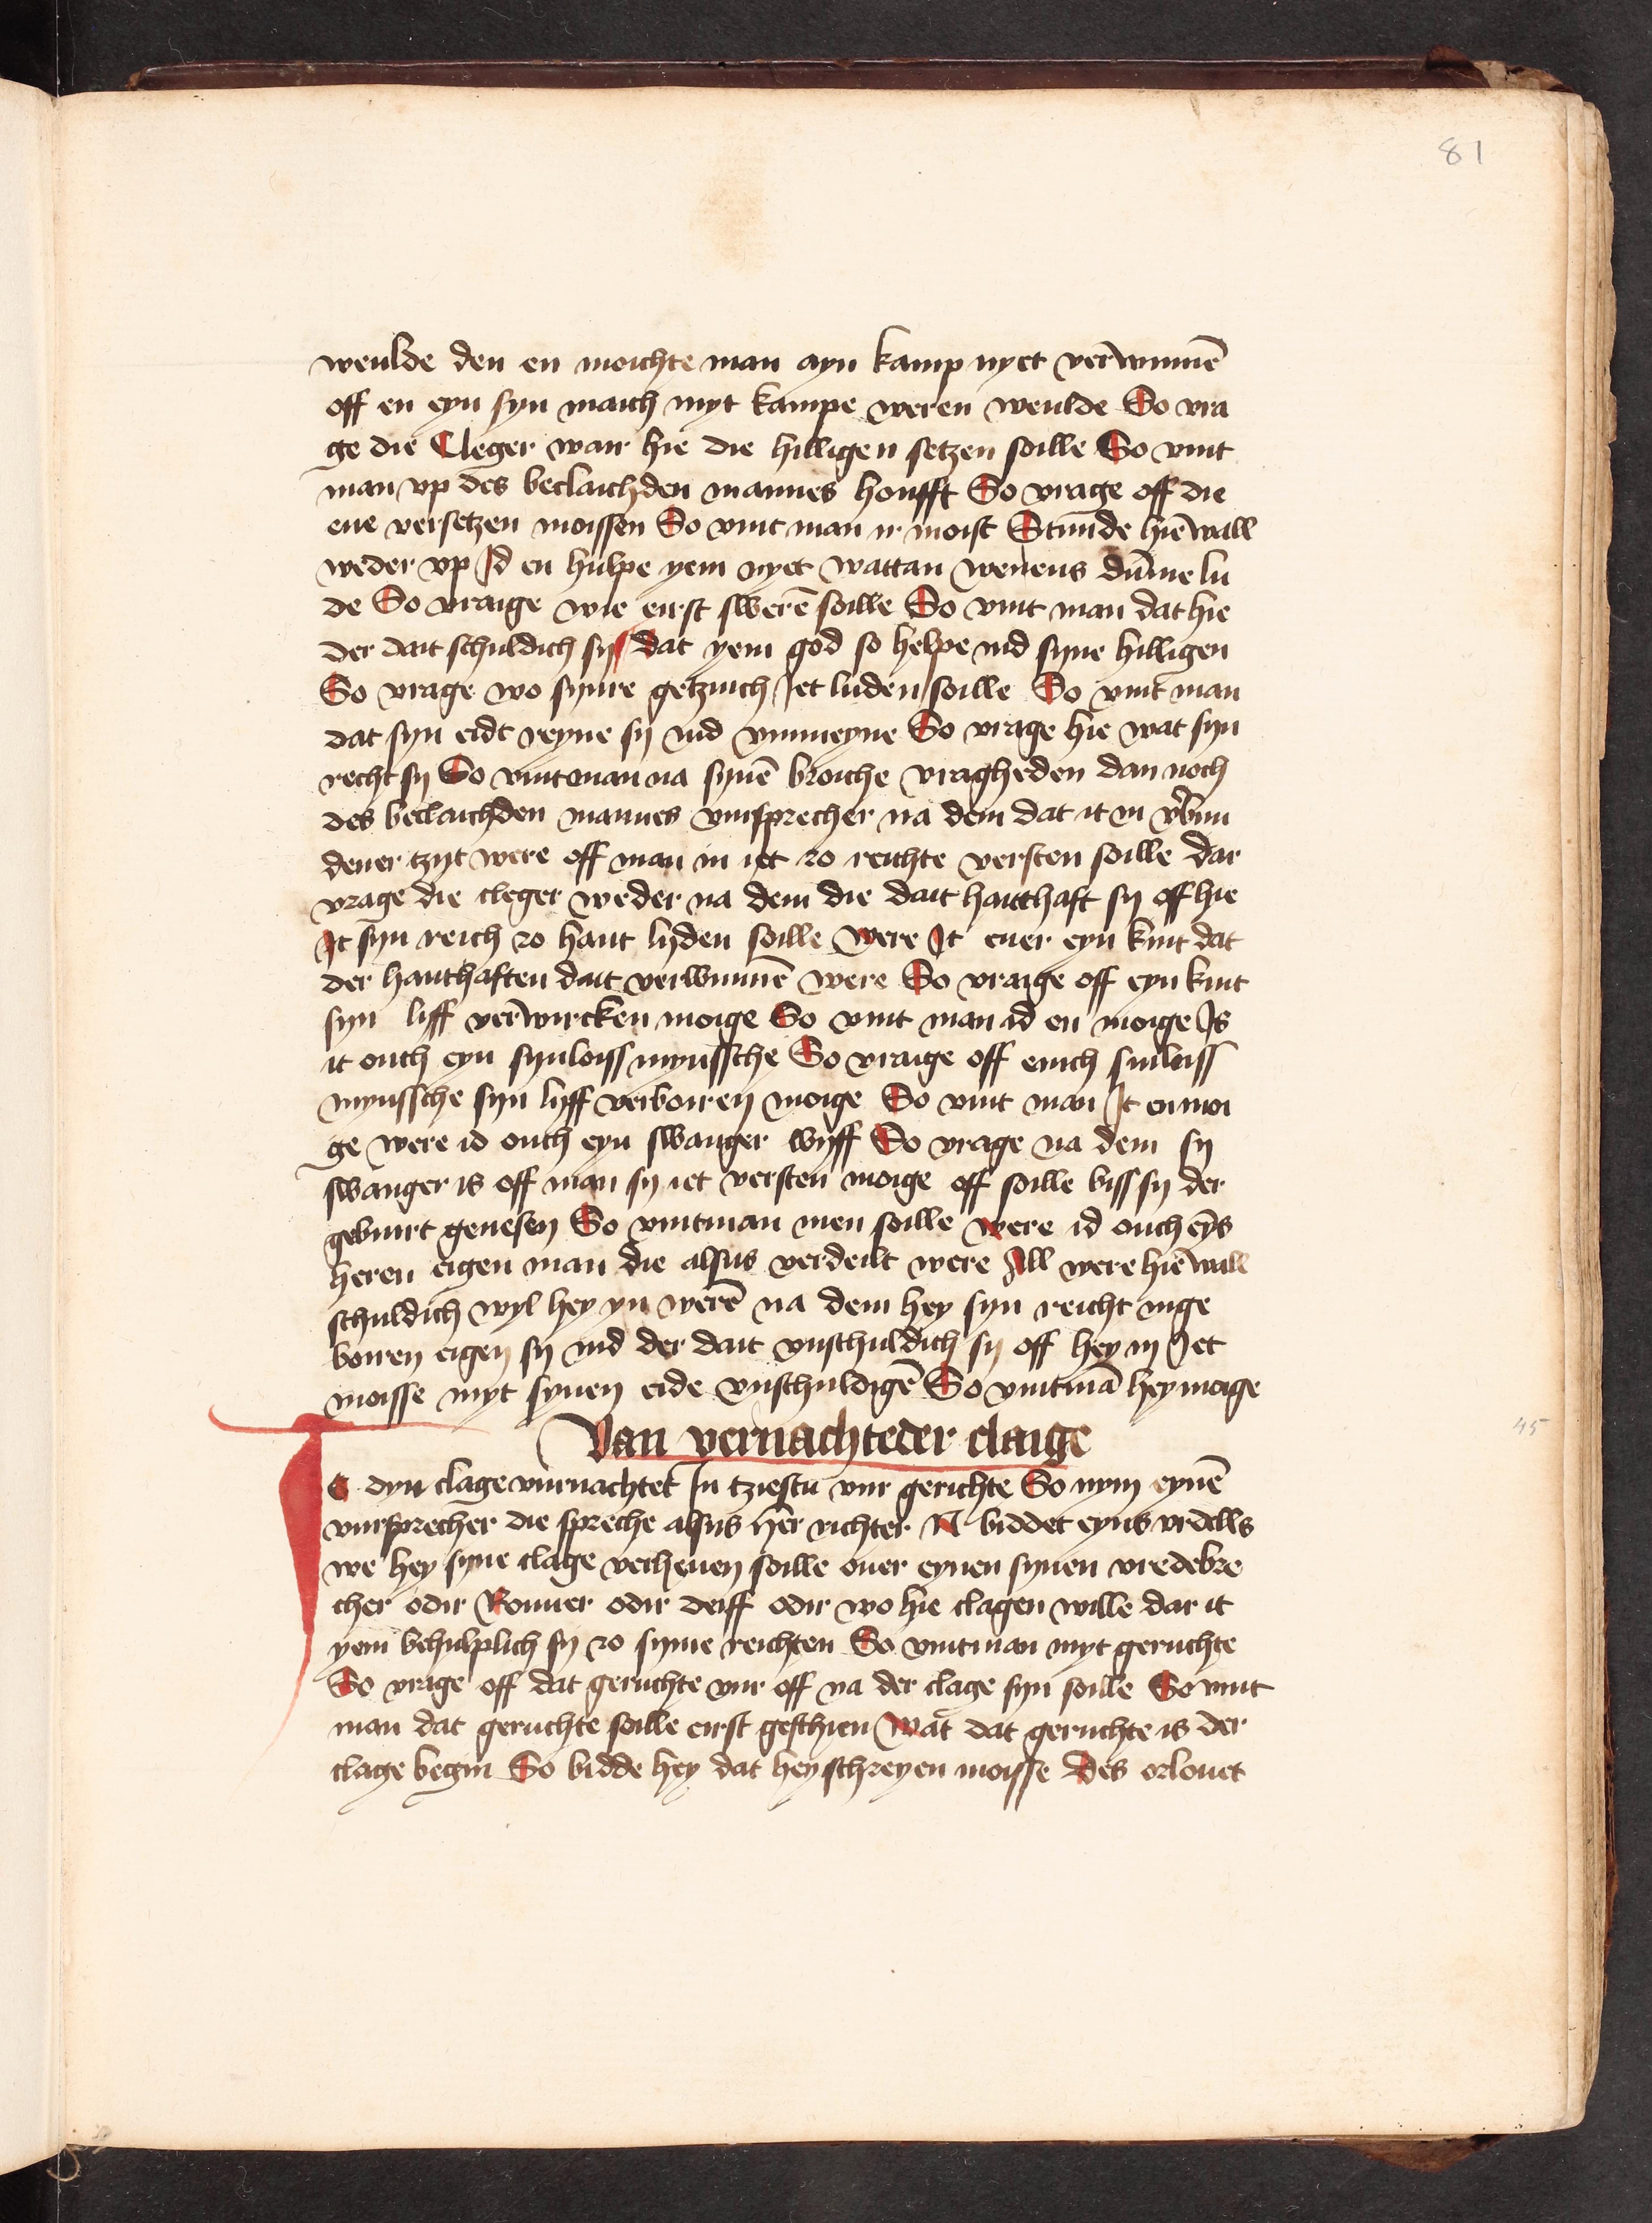 81
weulde den en moichte man ayn kamp nyet verwinnē
off en eyn syn maich myt kampe weren weulde So vra
ge die Cleger war hie die hilligen setzen soille So vint
man vp des beclaichden mannes houfft So vrage off die
ene versetzen moissen So vint man ir moist Stunde hie wall
weder vp Id en hulpe yem nyet wattan weuens dūme lu
de So vraige wie eirst swerē soille So vint man dat hie
der dait schuldich sy dat yem god so helpe ind syne hilligen
So vrage wo synre getzuich Jet luden soille So vint man
dat syn eidt reyne sy ind vnmeyne So vrage hie wat syn
recht sy So vint man na synē broiche vragheden dan noch
des beclaichden mannes vursprecher na dem dat it in v̓bun
dener tzyt were off man in iet zo reichte versten soille dar
vrage die cleger weder na dem die dait hantthaft sy off hie
It syn reich zo hant lyden soille were It euer eyn kint dat
der hanthaften dait verwunnē were So vraige off eyn kint
syn liff verwircken moige So vint man id en moige Is
it ouch eyn synloiss mynssche So vraige off enich sinloiss
mynssche syn lyff verboiren moige So vint man It en moi
ge were id ouch eyn swanger wyff So vrage na dem sy
swanger is off man sy iet versten moige off soille biss sy der
gebuirt genesen So vintman men soille were id ouch eyns
heren eigen man die alsus verdeilt were All were hie wall
schuldich wyl hey yn werē na dem hey syn reicht inge
boiren eigen sy ind der dait vnschuldich sy off hey in Jet
moisse myt synen eide vnschuldigē So vintmā hey moige
Van vernachteder claige
45
Is dyn clage vurnachtet In tziestu vur gerichte So nym eynē
vursprecher die spreche alsus her richter N biddet eyns vrdells
we hey syne clage verheuen soille ouer eynen synen vredebre
cher odir Rouuer odir deiff odir wo hie clagen wille dar it
yem behulplich sy zo syme reichten So vintman myt geruchte
So vrage off dat geruchte vur off na der clage syn soille So vint
man dat geruchte soille eirst geschien wāt dat geruchte is der
clage begin So bidde hey dat hey schreyen moisse Des orlouet